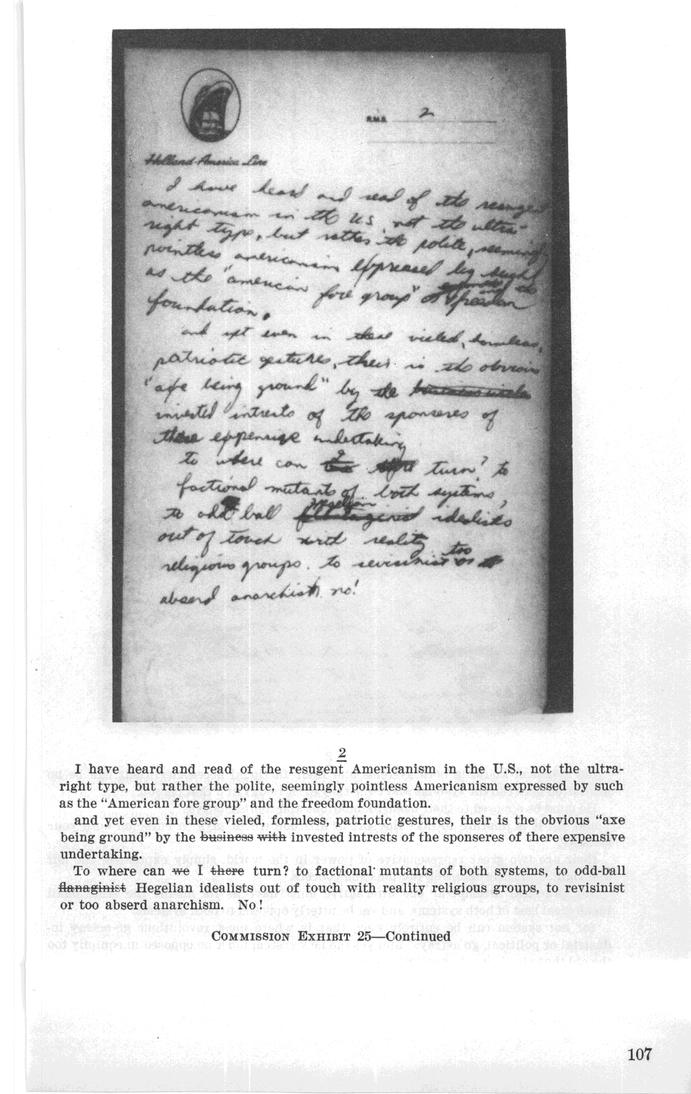 R.M.S. 2
Holland-America Line
I have heard and read of the resugent
americanism in the U.S. not the ultra-
right type, but rather the polite, seemingly
pointless americanism expressed by such
as the "american fore group" freedom
foundation.
and yet even in these vieled, formless,
patriotic gestures, their is the obvious
"axe being ground" by the
invested intrests of the sponseres of
these expensive undertaking
to where can I turn? to
factional mutants of both systems,
to odd ball Hegelian idealists
out of touch with reality
religious groups. to revisinist or too
abserd anarchism no!
2
I have heard and read of the resugent Americanism in the U.S., not the ultra-
right type, but rather the polite, seemingly pointless Americanism expressed by such
as the “American fore group” and the freedom foundation.
and yet even in these vieled, formless, patriotic gestures, their is the obvious “axe
being ground” by the business with invested intrests of the sponseres of there expensive
undertaking.
To where can we I there turn? to factional mutants of both systems, to odd-ball
flanaginist Hegelian idealists out of touch with reality religious groups, to revisinist
or too abserd anarchism. No!
COMMISSION EXHIBIT 25—Continued
107